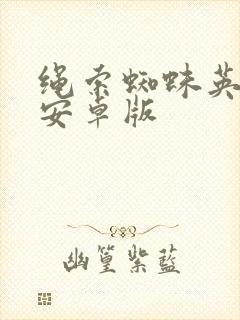 绳索蜘蛛英
安卓版
幽篁紫蓝